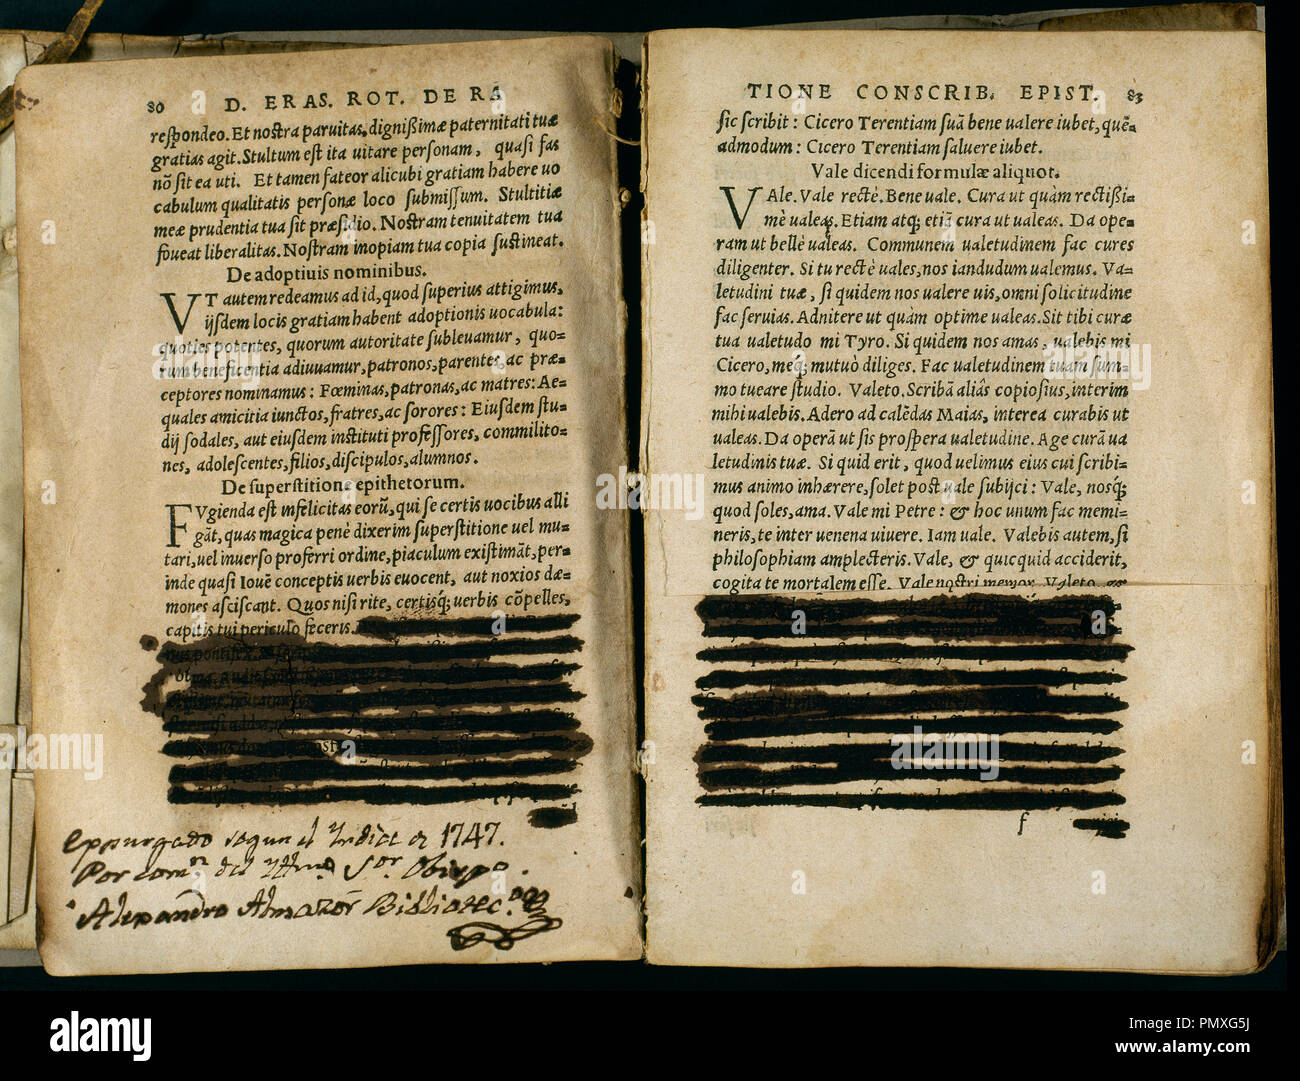 80 D. ERAS. ROT. DE RA
respondeo. Et nostra paruitas, dignißimæ paternitati tuæ
gratias agit. Stultum est ita uitare personam, quasi fas
nõ sit ea uti. Et tamen fateor alicubi gratiam habere uo
cabulum qualitatis personæ loco submissum. Stultitiæ
meæ prudentia tua sit præsidio. Nostram tenuitatem tua
foueat liberalitas. Nostram inopiam tua copia sustineat.
De adoptiuis nominibus.
VT autem redeamus ad id, quod superius attigimus,
ijsdem locis gratiam habent adoptionis uocabula:
quoties potentes, quorum autoritate subleuamur, quo-
rum beneficentia adiuuamur, patronos, parentes, ac præ-
ceptores nominamus: Fœminas, patronas, ac matres: Ae-
quales amicitia iunctos, fratres, ac sorores: Eiusdem stu-
dij sodales, aut eiusdem instituti professores, commilito-
nes, adolescentes, filios, discipulos, alumnos.
De superstitione epithetorum.
FVgienda est infelicitas eorũ, qui se certis uocibus alli
gãt, quas magica penè dixerim superstitione uel mu-
tari, uel inuerso proferri ordine, piaculum existimãt, per-
inde quasi Iouẽ conceptis uerbis euocent, aut noxios dæ-
mones asciscant. Quos nisi rite, certisq; uerbis cõpelles,
capitis tui periculo feceris.
expurgado segun el Indice de 1747.
Por com.on del Illmo. Sor. Obispo.
Alexandro Almazór Bibliotec.o
TIONE CONSCRIB. EPIST. 83
sic scribit: Cicero Terentiam suã bene ualere iubet, quẽ-
admodum: Cicero Terentiam saluere iubet.
Vale dicendi formulæ aliquot.
VAle. Vale rectè. Bene uale. Cura ut quàm rectißi-
mè ualeas. Etiam atq; etiã cura ut ualeas. Da ope-
ram ut bellè ualeas. Communem ualetudinem fac cures
diligenter. Si tu rectè uales, nos iandudum ualemus. Va-
letudini tuæ, si quidem nos ualere uis, omni solicitudine
fac seruias. Adnitere ut quàm optime ualeas. Sit tibi curæ
tua ualetudo mi Tyro. Si quidem nos amas, ualebis mi
Cicero, meq; mutuò diliges. Fac ualetudinem tuam sum-
mo tueare studio. Valeto. Scribã aliâs copiosius, interim
mihi ualebis. Adero ad calẽdas Maias, interea curabis ut
ualeas. Da operã ut sis prospera ualetudine. Age curã ua
letudinis tuæ. Si quid erit, quod uelimus eius cui scribi-
mus animo inhærere, solet post uale subijci: Vale, nosq;
quod soles, ama. Vale mi Petre: & hoc unum fac memi-
neris, te inter uenena uiuere. Iam uale. Valebis autem, si
philosophiam amplecteris. Vale, & quicquid acciderit,
cogita te mortalem esse. Vale nostri memor. Valeto, &
f
alamy
Image ID: PMXG5J
www.alamy.com